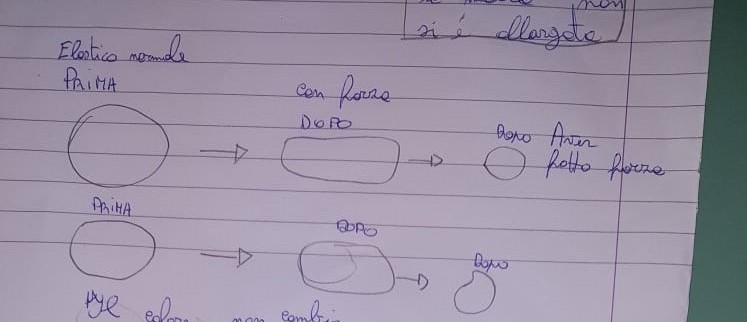 non
si é allargato
Elastico normale
PRIMA
con forza
DOPO
DOPO Aver
fatto forza
PRIMA
DOPO
DOPO
non cambi